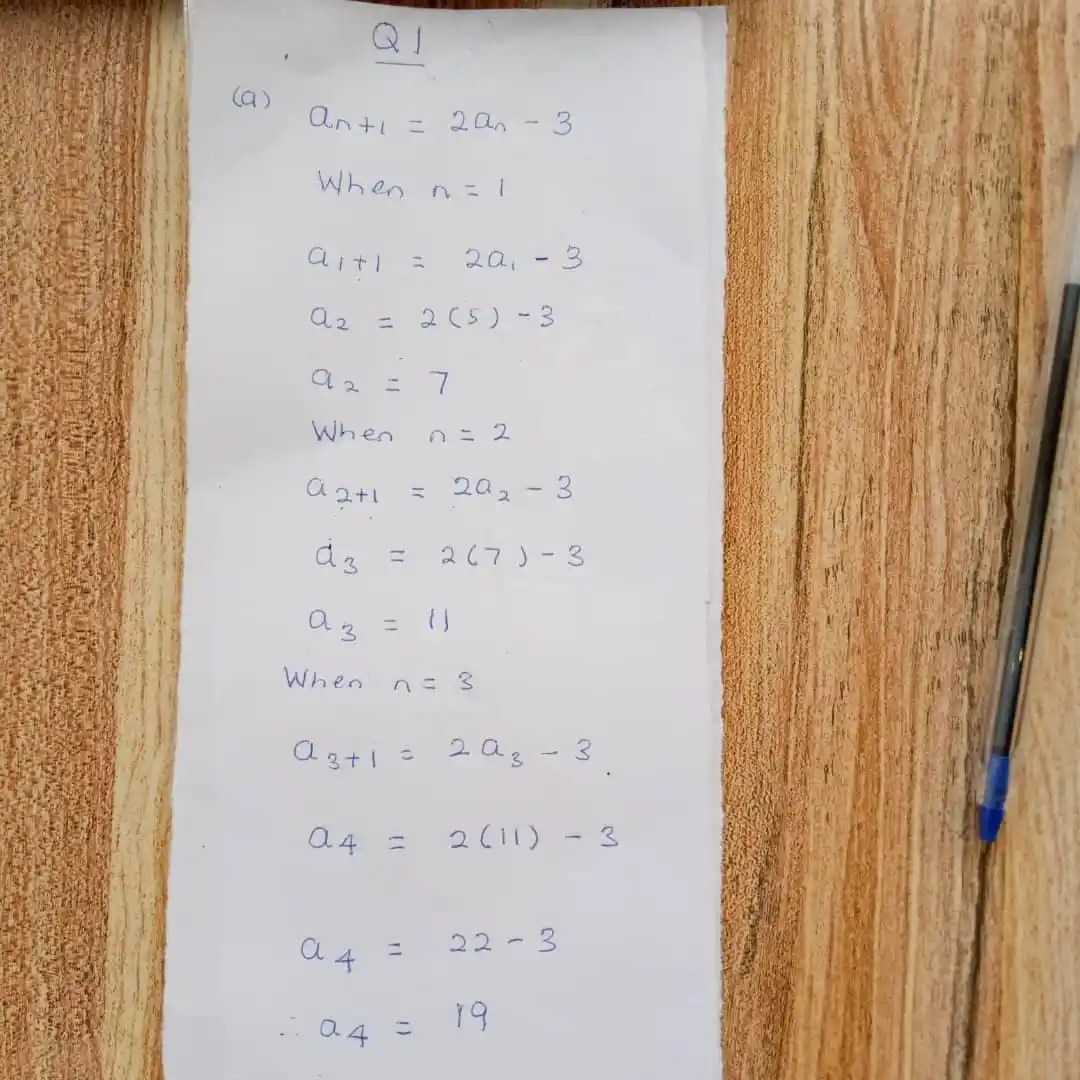 Q1
(a) an+1 = 2an - 3
When n = 1
a1+1 = 2a1 - 3
a2 = 2(5) - 3
a2 = 7
When n = 2
a2+1 = 2a2 - 3
a3 = 2(7) - 3
a3 = 11
When n = 3
a3+1 = 2a3 - 3
a4 = 2(11) - 3
a4 = 22 - 3
∴ a4 = 19